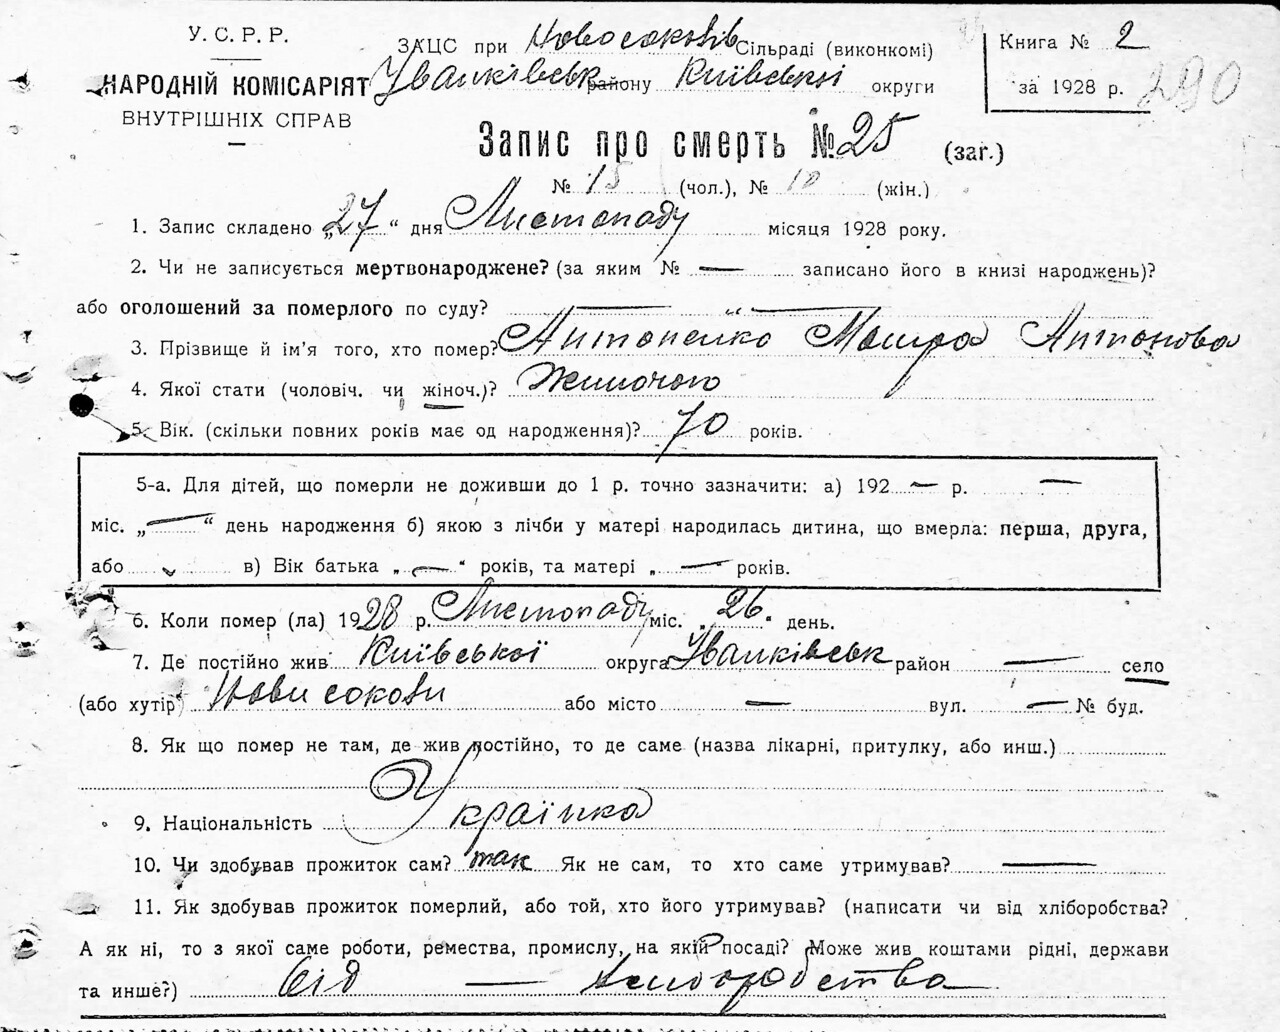 У. С. Р. Р.
НАРОДНІЙ КОМІСАРІЯТ
ВНУТРІШНІХ СПРАВ
ЗАЦС при Новосоколів Сільраді (виконкомі)
Іванківськ району Київської округи
Книга № 2
за 1928 р.
290
Запис про смерть № 25 (заг.)
№ 15 (чол.), № 10 (жін.)
1. Запис складено „27“ дня Листопаду місяця 1928 року.
2. Чи не записується мертвонароджене? (за яким № — записано його в книзі народжень)?
або оголошений за померлого по суду? —
3. Прізвище й ім'я того, хто помер? Антопейко Антонова
4. Якої стати (чоловіч. чи жіноч.)? Жиночого
5. Вік. (скільки повних років має од народження)? 70 років.
5-а. Для дітей, що померли не доживши до 1 р. точно зазначити: а) 192 — р. —
міс. „—“ день народження б) якою з лічби у матері народилась дитина, що вмерла: перша, друга,
або в) Вік батька „—“ років, та матері „— років.
6. Коли помер (ла) 1928 р. Листопаду міс. „26“ день.
7. Де постійно жив Київської округа Іванківськ район — село
(або хутір) Нови соколи або місто — вул. — № буд.
8. Як що помер не там, де жив постійно, то де саме (назва лікарні, притулку, або инш.)
9. Національність Українка
10. Чи здобував прожиток сам? так Як не сам, то хто саме утримував? —
11. Як здобував прожиток померлий, або той, хто його утримував? (написати чи від хліборобства?
А як ні, то з якої саме роботи, ремества, промислу, на якій посаді? Може жив коштами рідні, держави
та инше?) від —